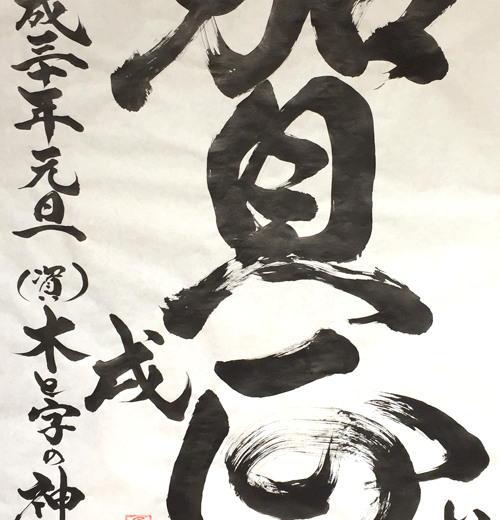 賀
戌
成三十年元旦
(資)木と字の神